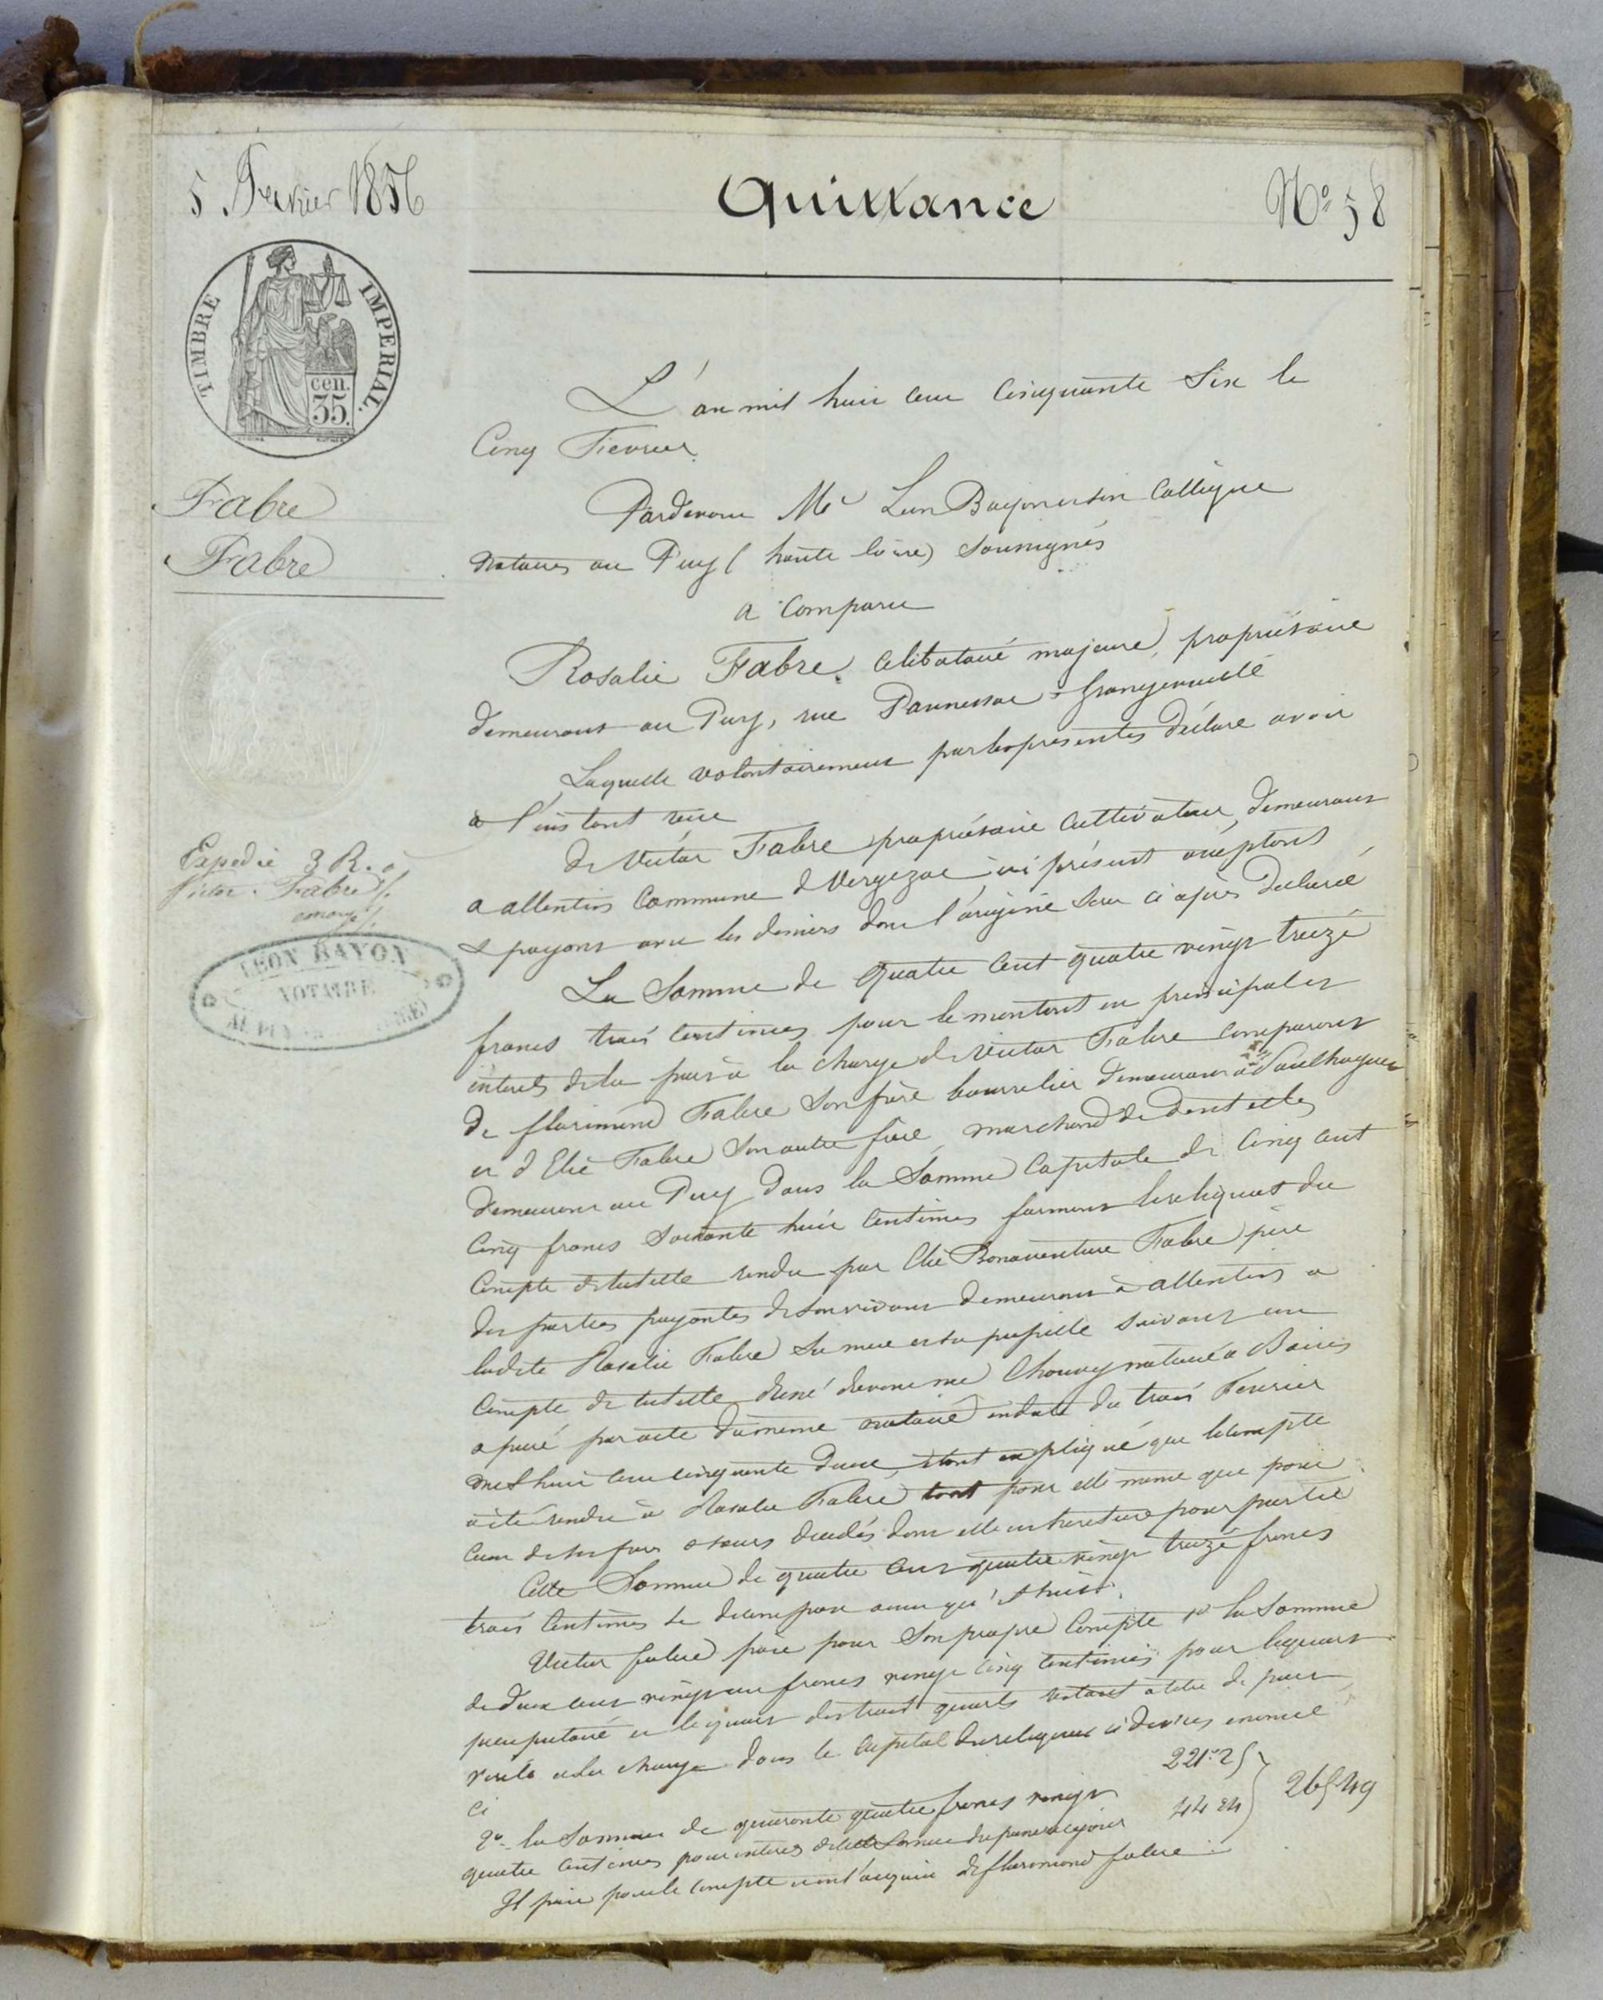 5 Fevrier 1856
Quittance
N° 58
TIMBRE IMPERIAL.
cen.
35.
Fabre
Fabre
Expedié 3 R. à
Victor Fabre
LÉON BAYON
NOTAIRE
AU PUY
L'an mil huit cent cinquante six le
Cinq Fevrier
Pardevant Me Leon Bayon et son Collègue
notaires au Puy (haute loire) soussignés
a Comparu
Rosalie Fabre, celibataire majeure, propriétaire
demeurant au Puy, rue Pannessac-Grangevieille
Laquelle volontairement par les présentes déclare avoir
à l'instant reçu
de Victor Fabre propriétaire cultivateur, demeurant
a allentin Commune de Vergezac, ici présent acceptant
& payant avec les deniers dont l'origine sera ci après declaré
La Somme de quatre cent quatre vingt treize
francs trois centimes pour le montant en principal et
intérêts de la part à la charge de Victor Fabre comparant
de florimond Fabre son frère bourrelier demeurant à Saulhagues
et d'Elie Fabre son autre frère, marchand de dentelles
demeurant au Puy dans la Somme Capitale de Cinq cent
Cinq francs soixante huit centimes formant le reliquat du
Compte de tutelle rendu par Elie Bonaventure Fabre père
des parties payantes de son vivant demeurant à allentin a
ladite Rosalie Fabre sa niece et sa pupille suivant un
Compte de tutelle dressé devant me Chouvy notaire à Bains
apuré par acte du même notaire en date du trois Fevrier
mil huit cent cinquante deux, étant expliqué que le compte
a été rendu à Rosalie Fabre tant pour elle même que pour
ceux de ses freres & sœurs decedés dont elle est heritiere pour partie
Cette Somme de quatre cent quatre vingt treize francs
trois Centimes se decompose ainsi qu'il suit.
Victor fabre paie pour son propre Compte 1° la Somme
de deux cent vingt un francs vingt cinq centimes pour le quart
preciputaire et le quart des trois quarts restant à titre de part
virile a sa charge dans le capital du reliquat ci dessus enoncé
ci 221 25
2° la Somme de quarante quatre francs vingt
quatre centimes pour interets de cette somme dus jusqu'à ce jour 44 24
265 49
Il paie pour le compte et en l'acquit de florimond fabre